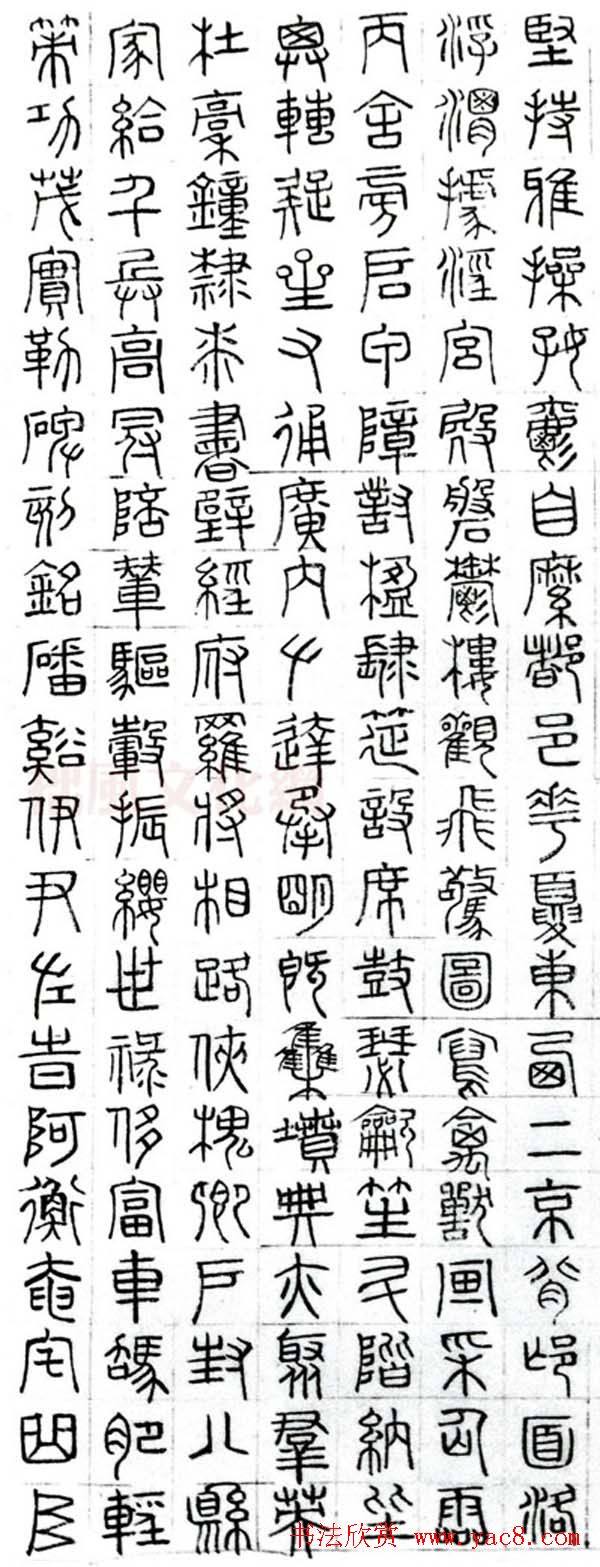 堅持雅操好爵自縻都邑華夏東西二京背邙面洛
浮渭據涇宮殿磐鬱樓觀飛驚圖寫禽獸畫采仙靈
丙舍旁启甲帳對楹肆筵設席鼓瑟龡笙升階納陛
弁轉疑星右通廣內左達承明既集墳典亦聚羣英
杜稾鐘隸漆書壁經府羅將相路俠槐卿戶封八縣
家給千兵高冠陪輦驅轂振纓世祿侈富車駕肥輕
策功茂實勒碑刻銘磻谿伊尹佐時阿衡奄宅曲阜
书法欣赏 www.yac8.com